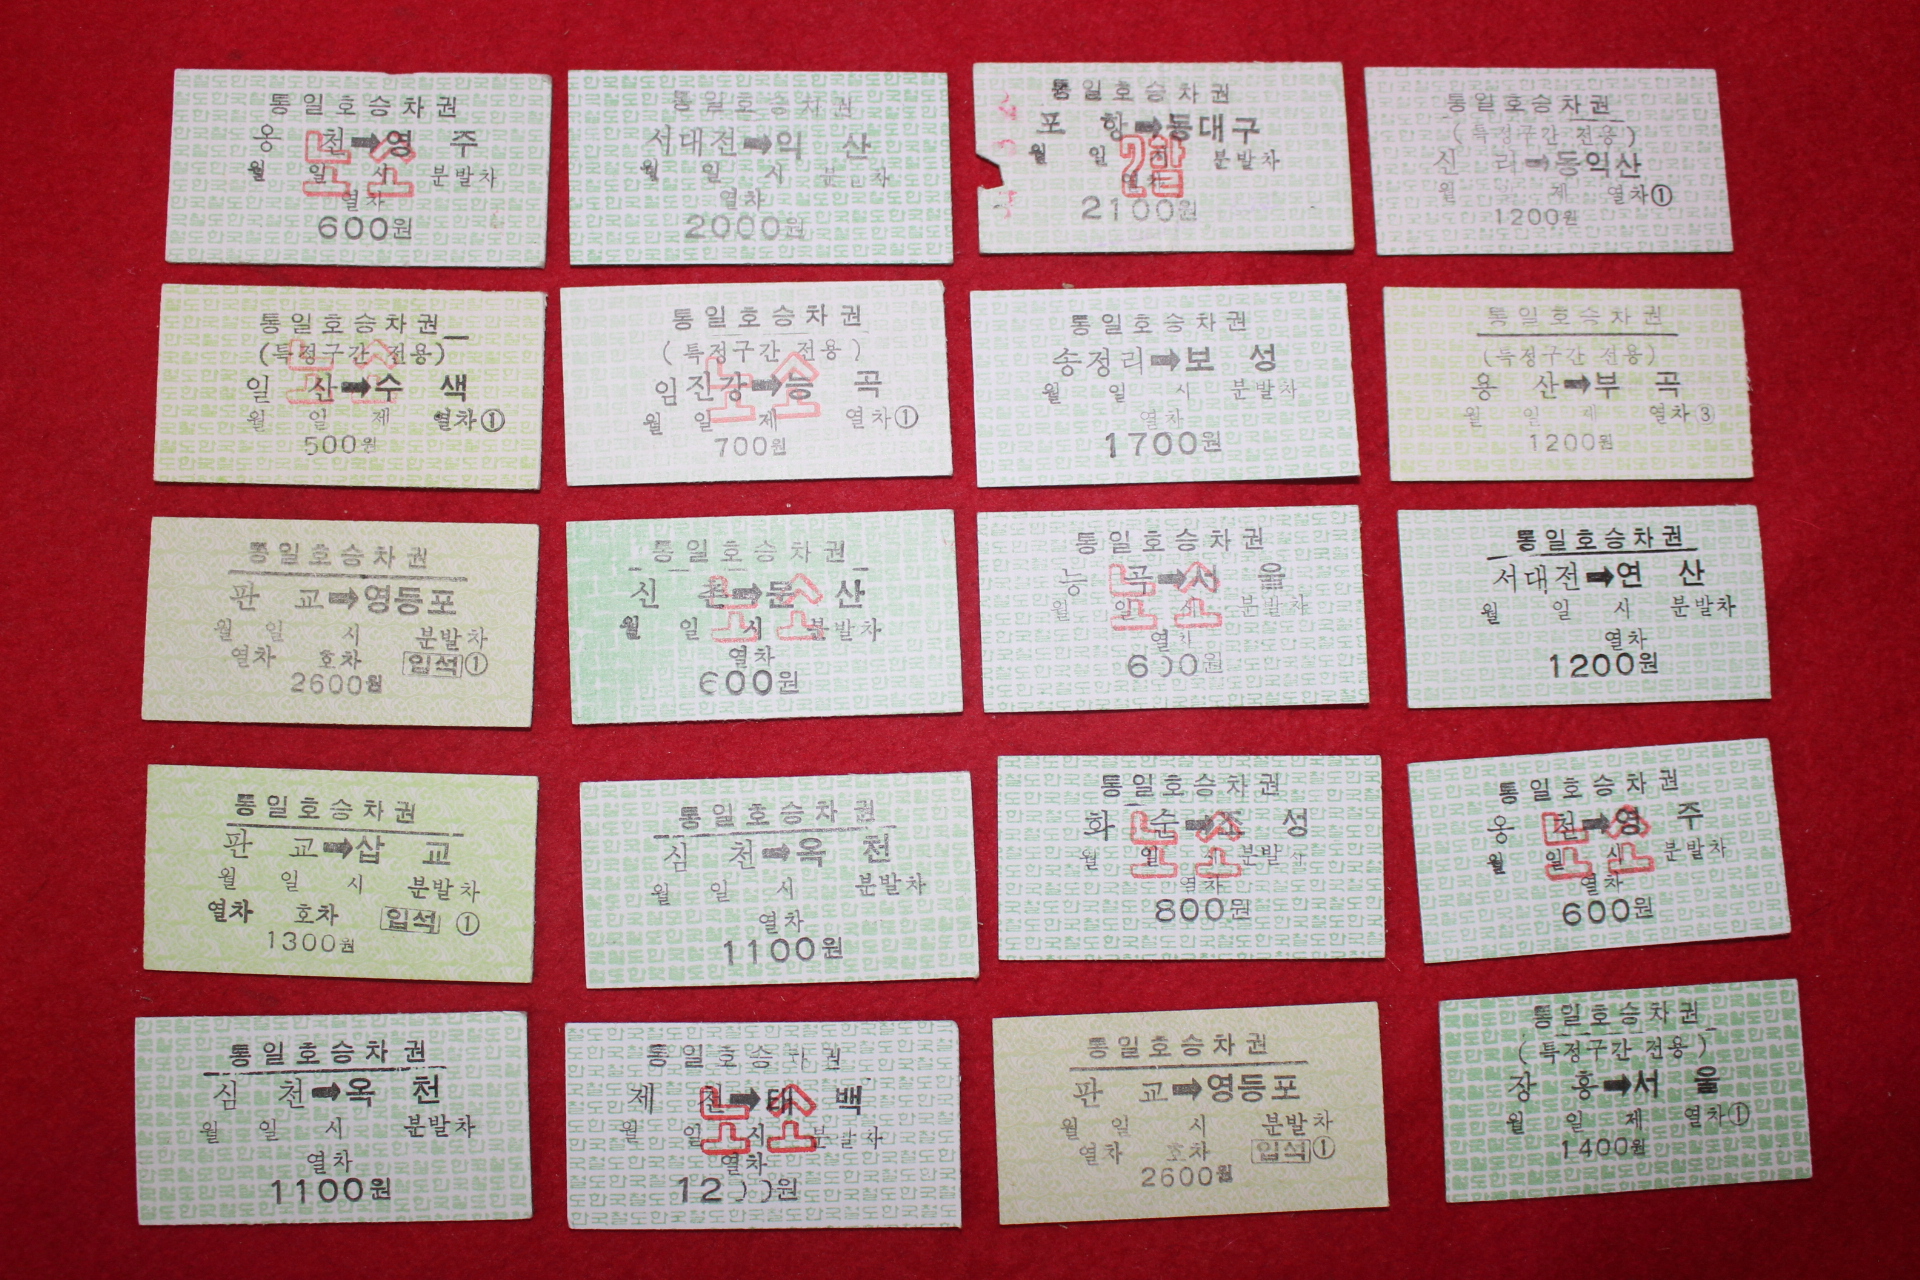 통일호승차권
옹 천➡영 주
월 일 시 분발차
열차
600원
노소
통일호승차권
서대전➡익 산
월 일 시 분발차
열차
2000원
통일호승차권
포 항➡동대구
월 일 시 분발차
열차
2100원
통일호승차권
(특정구간 전용)
신 리➡동익산
월 제 열차①
1200원
통일호승차권
(특정구간 전용)
일 산➡수 색
월 일 제 열차①
500원
노소
통일호승차권
(특정구간 전용)
임진강➡능 곡
월 일 제 열차①
700원
노소
통일호승차권
송정리➡보 성
월 일 시 분발차
열차
1700원
통일호승차권
(특정구간 전용)
용 산➡부 곡
월 일 제 열차③
1200원
통일호승차권
판 교➡영등포
월 일 시 분발차
열차 호차 입석①
2600원
통일호승차권
신 촌➡문 산
월 일 시 분발차
열차
600원
노소
통일호승차권
능 곡➡서 울
월 일 시 분발차
열차
600원
노소
통일호승차권
서대전➡연 산
월 일 시 분발차
열차
1200원
통일호승차권
판 교➡삽 교
월 일 시 분발차
열차 호차 입석 ①
1300원
통일호승차권
심 천➡옥 천
월 일 시 분발차
열차
1100원
통일호승차권
화 순➡조 성
월 일 시 분발차
열차
800원
노소
통일호승차권
옹 천➡영 주
월 일 시 분발차
열차
600원
노소
통일호승차권
심 천➡옥 천
월 일 시 분발차
열차
1100원
통일호승차권
제 천➡태 백
월 일 시 분발차
열차
1200원
노소
통일호승차권
판 교➡영등포
월 일 시 분발차
열차 호차 입석①
2600원
통일호승차권
(특정구간 전용)
장 흥➡서 울
월 일 제 열차①
1400원